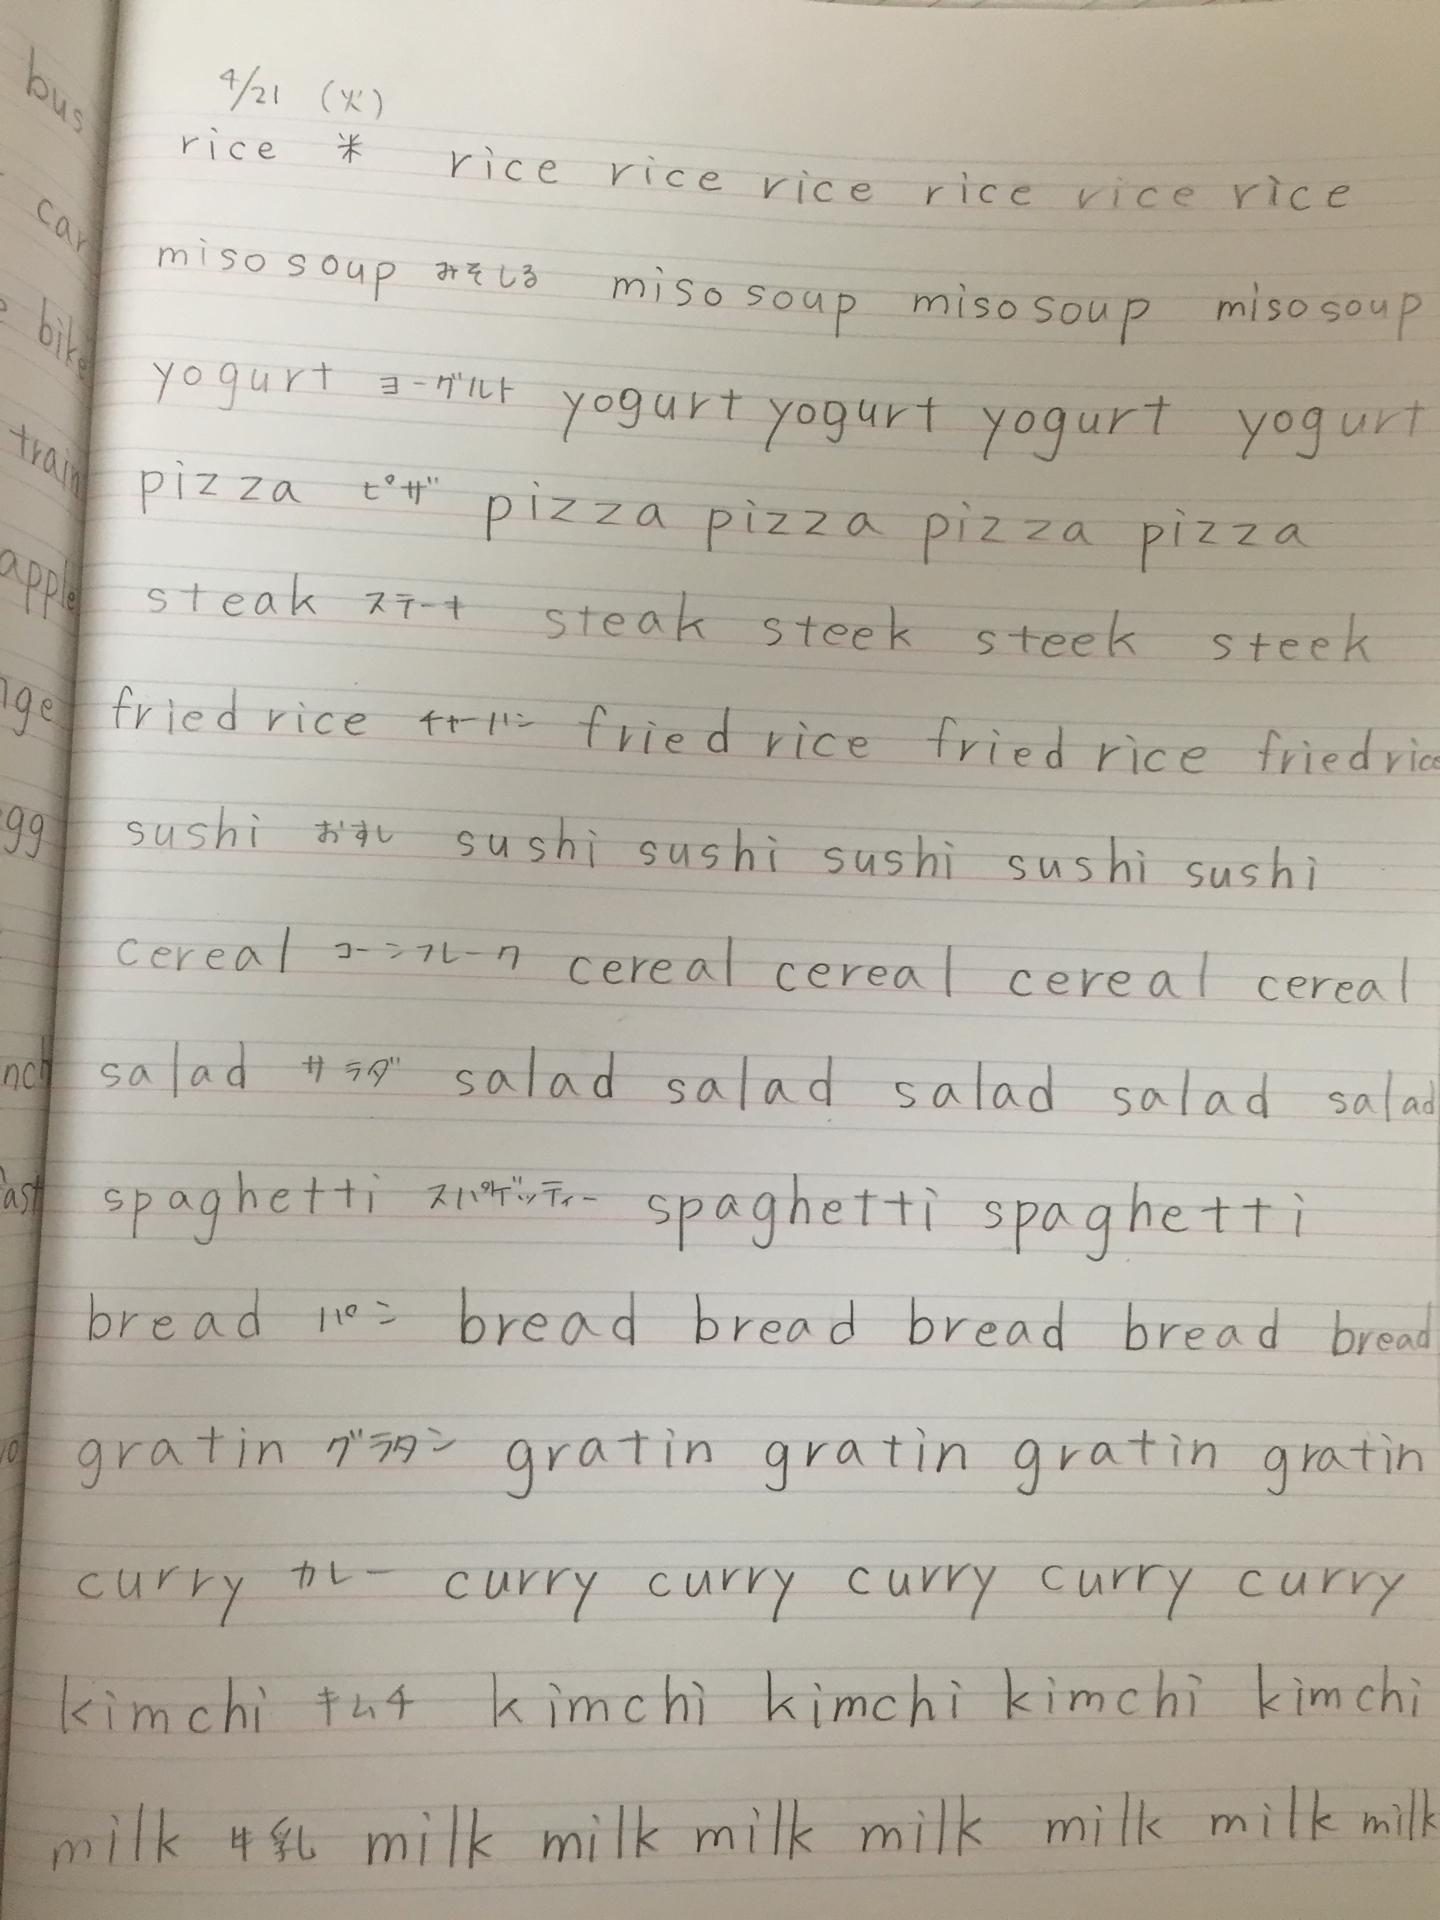 4/21 (火)
rice 米 rice rice rice rice rice rice
miso soup みそしる miso soup miso soup miso soup
yogurt ヨーグルト yogurt yogurt yogurt yogurt
pizza ピザ pizza pizza pizza pizza
steak ステーキ steak steek steek steek
fried rice チャーハン fried rice fried rice fried rice
sushi おすし sushi sushi sushi sushi sushi
cereal コーンフレーク cereal cereal cereal cereal
salad サラダ salad salad salad salad salad
spaghetti スパゲッティー spaghetti spaghetti
bread パン bread bread bread bread bread
gratin グラタン gratin gratin gratin gratin
curry カレー curry curry curry curry curry
kimchi キムチ kimchi kimchi kimchi kimchi
milk 牛乳 milk milk milk milk milk milk milk
bus
car
bike
train
apple